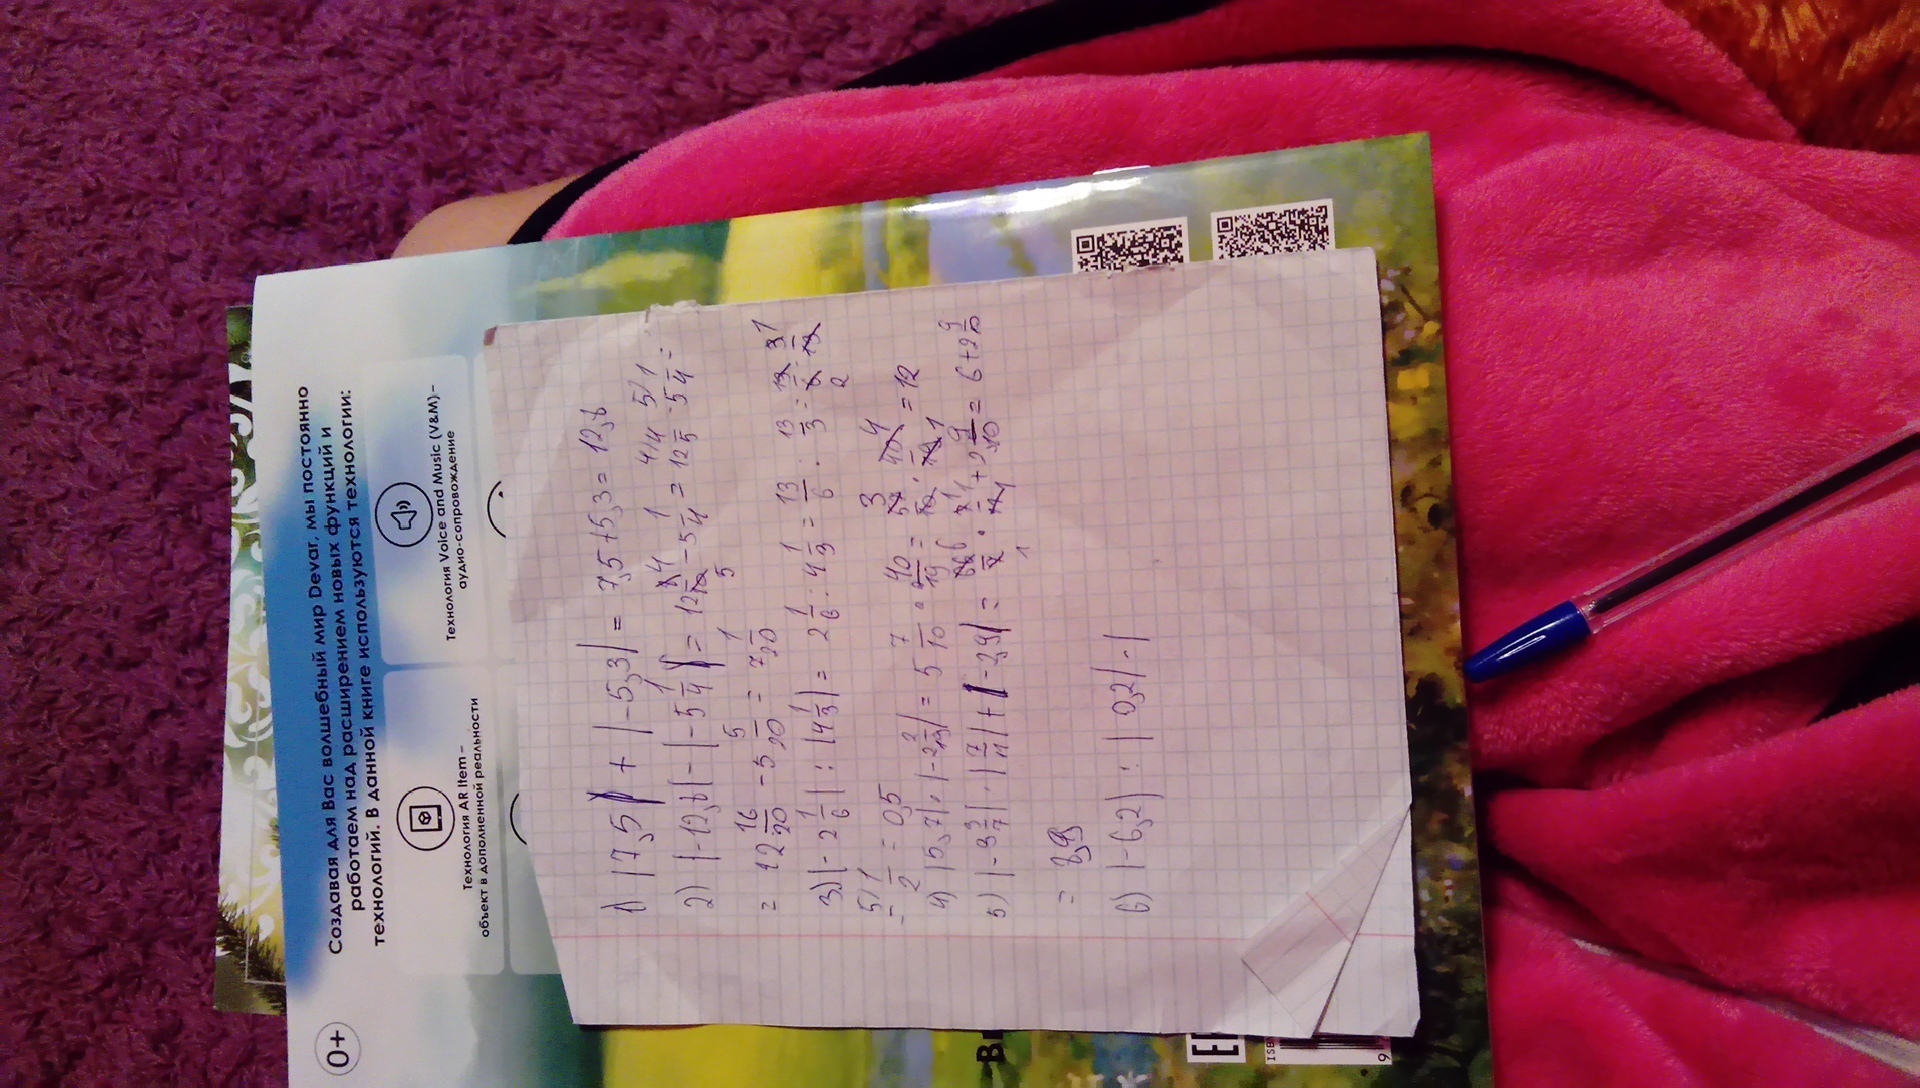 0+
Создавая для Вас волшебный мир Devar, мы постоянно
работаем над расширением новых функций и
технологий. В данной книге используются технологии:
Технология AR Item –
объект в дополненной реальности
Технология Voice and Music (V&M)–
аудио-сопровождение
1) |7,5| + |-5,3| = 7,5+5,3 = 12,8
2) |-12,8| - |-5 1/4| = 12 8/10 4/5 - 5 1/4 = 12 4/5 - 5 1/4 =
= 12 16/20 - 5 5/20 = 7 1/20
3) |-2 1/6| : |4 1/3| = 2 1/6 : 4 1/3 = 13/6 : 13/3 = 13/6 · 3/13
= 1/2 = 0,5
4) |5,7| · |-2 2/19| = 5 7/10 · 40/19 = 57/10 · 40/19 = 12
5) |-3 3/7| · |7/11| + |-2,9| = + 2 9/10 = 6+2 9/10
= 8,9
6) |-6,2| : | 0,2| · |
ISBN
9